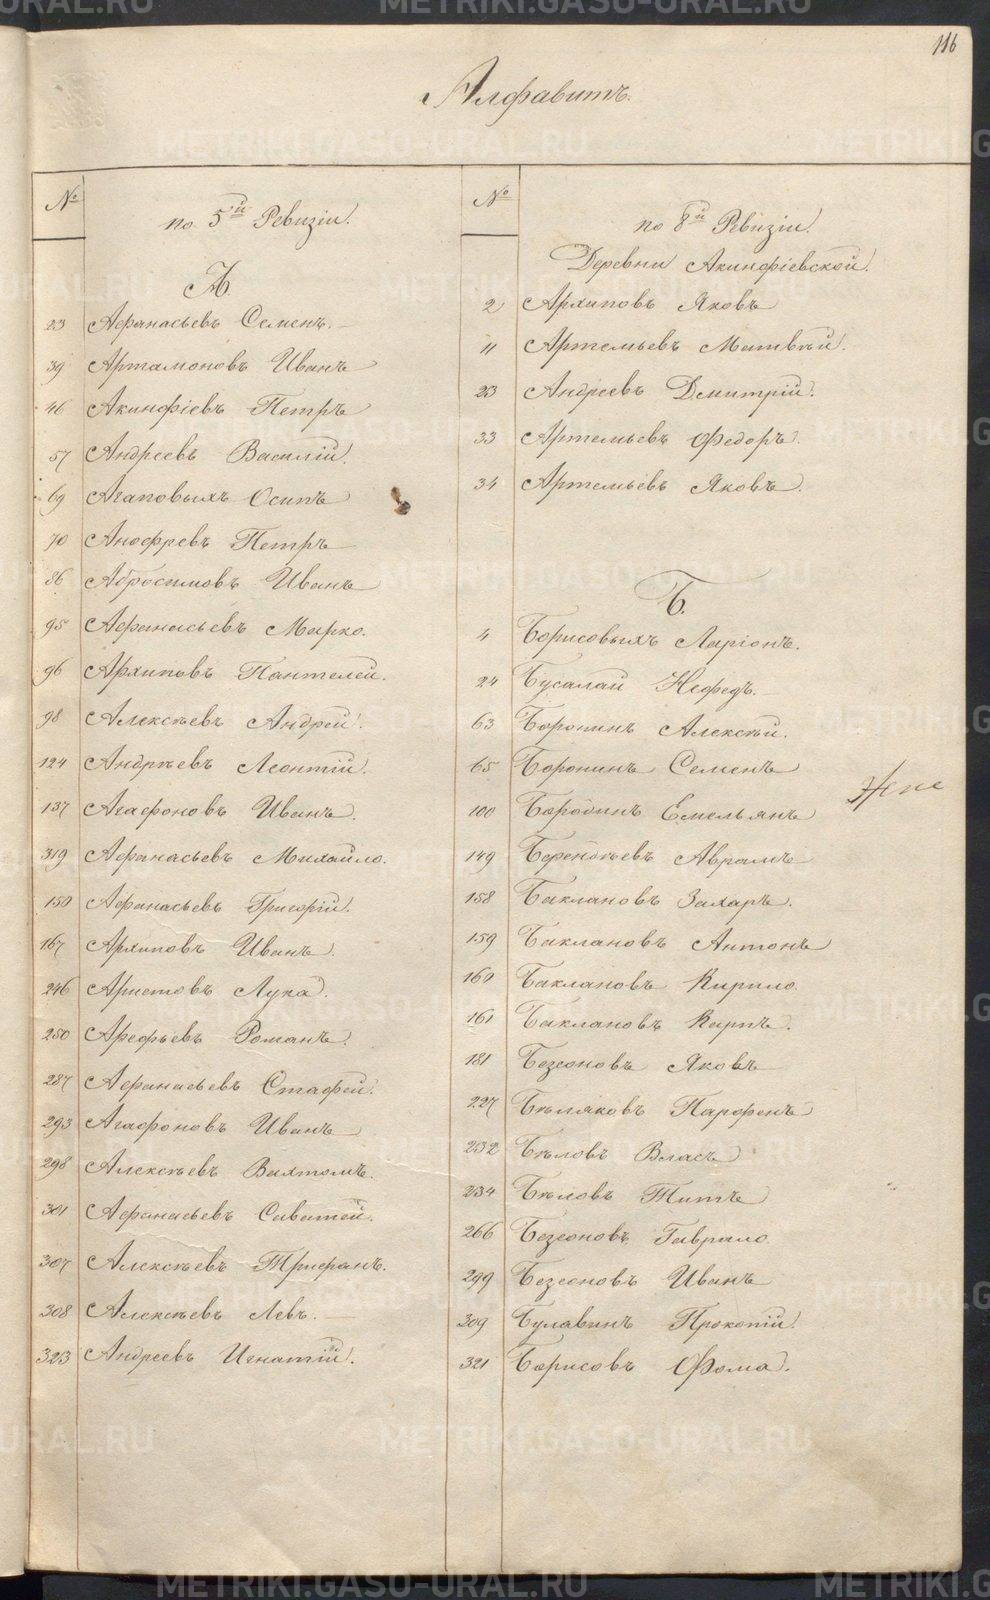 116
Алфавитъ.
№
по 5й Ревизіи.
А.
23 Афанасьевъ Семенъ.
39 Артамоновъ Иванъ
46 Акинфіевъ Петръ
57 Андреевъ Василій.
69 Агаповыхъ Осипъ
70 Анофревъ Петръ
86 Абросимовъ Иванъ
95 Афанасьевъ Марко.
96 Архиповъ Пантелей.
98 Алексѣевъ Андрей.
124 Андрѣевъ Леонтій.
137 Агафоновъ Иванъ.
319 Афанасьевъ Михайло.
150 Афанасьевъ Григорій.
167 Архиповъ Иванъ.
246 Аристовъ Лука.
250 Арефьевъ Романъ.
287 Афанасьевъ Стафей.
293 Агафоновъ Иванъ
298 Алексѣевъ Вахтомъ.
301 Афанасьевъ Саватей.
307 Алексѣевъ Трифанъ.
308 Алексѣевъ Левъ.
323 Андреевъ Игнатій.
№
по 8й Ревизіи.
Деревни Акинфіевской.
2 Архиповъ Яковъ
11 Артемьевъ Матвѣй.
23 Андреевъ Дмитрій.
33 Артемьевъ Федоръ.
34 Артемьевъ Яковъ.
Б.
4 Борисовыхъ Ларіонъ.
24 Бусалай Нефедъ.
63 Боронинъ Алексѣй.
65 Боронинъ Семенъ
100 Бородинъ Емельянъ
149 Аврамъ
158 Баклановъ Захаръ.
159 Баклановъ Антонъ
160 Баклановъ Кирило.
161 Баклановъ Карпъ.
181 Безсоновъ Яковъ
227 Бѣляковъ Парфенъ
232 Бѣловъ Власъ
234 Бѣловъ Титъ
266 Безсоновъ Гаврило.
299 Безсоновъ Иванъ
309 Булавинъ Прокопій.
321 Борисовъ Фома.
METRIKI.GASO-URAL.RU